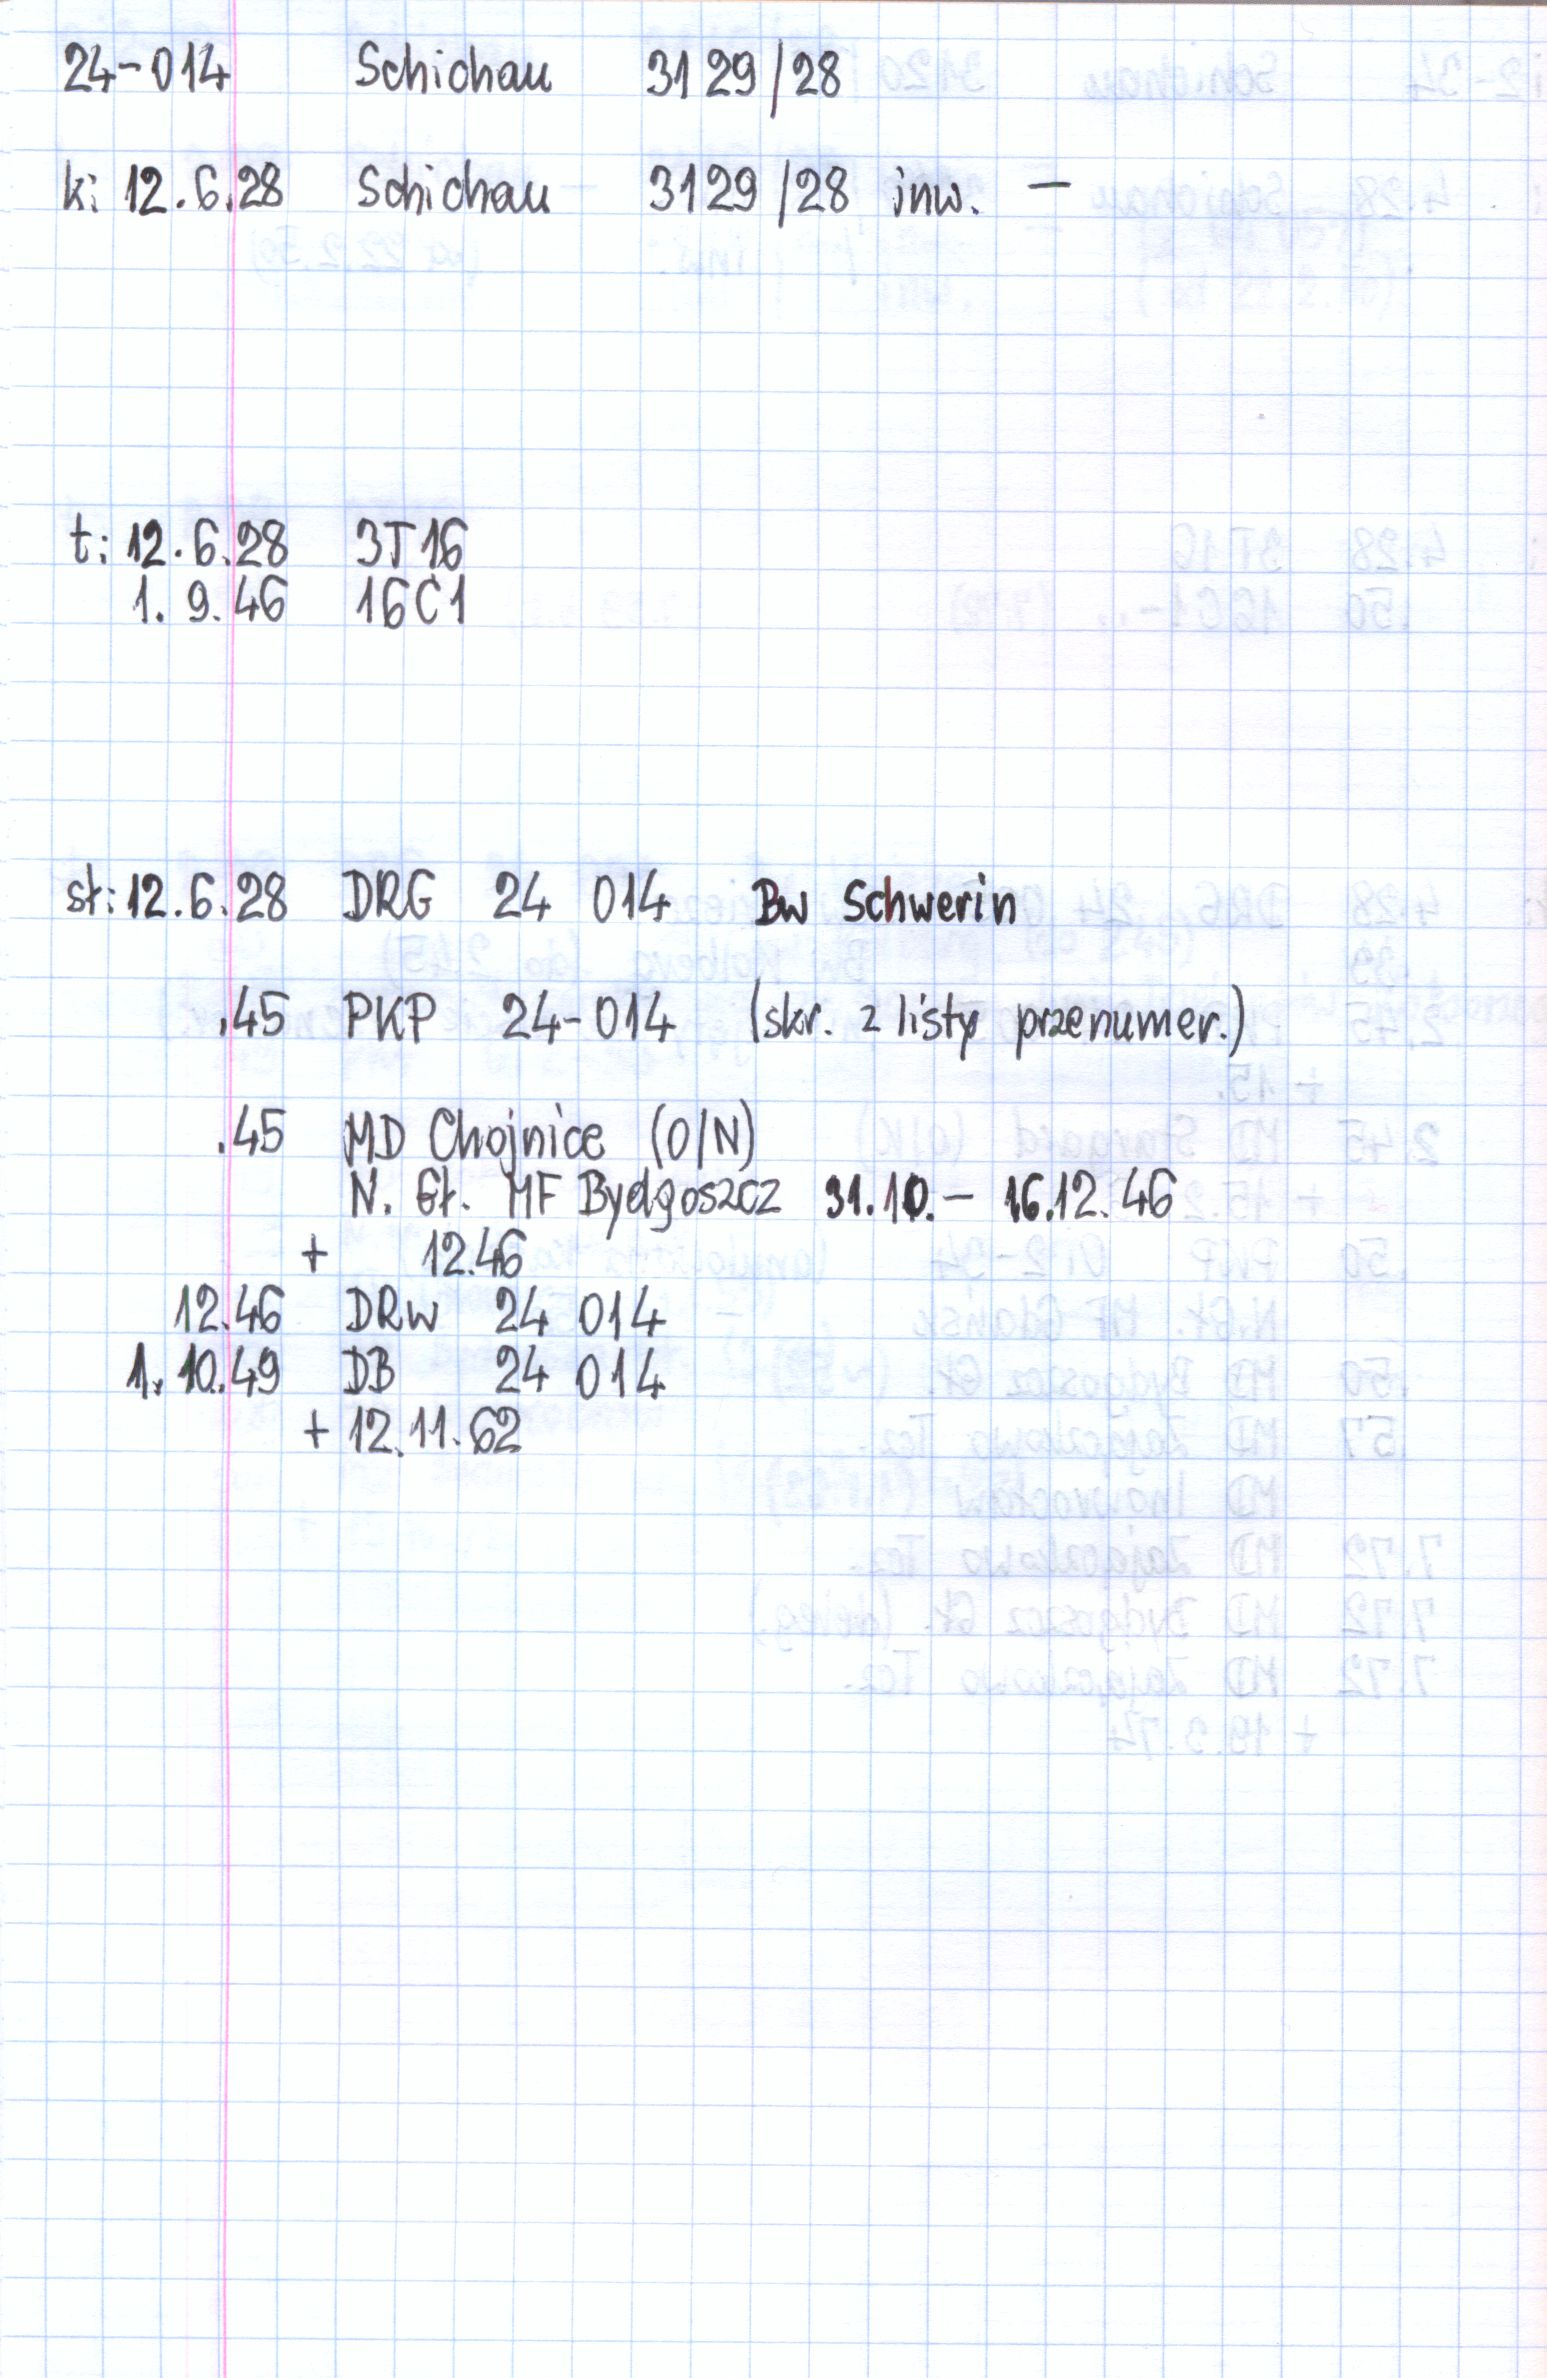 24-014 Schichau 3129/28
k: 12.6.28 Schichau 3129/28 inw. —
t: 12.6.28 3T16
1. 9.46 16C1
st: 12.6.28 DRG 24 014 Bw Schwerin
.45 PKP 24-014 (skr. z listy przenumer.)
.45 MD Chojnice (O/N)
N. Gł. MF Bydgoszcz 31.10.– 16.12.46
+ 12.46
12.46 DRW 24 014
1.10.49 DB 24 014
+ 12.11.62